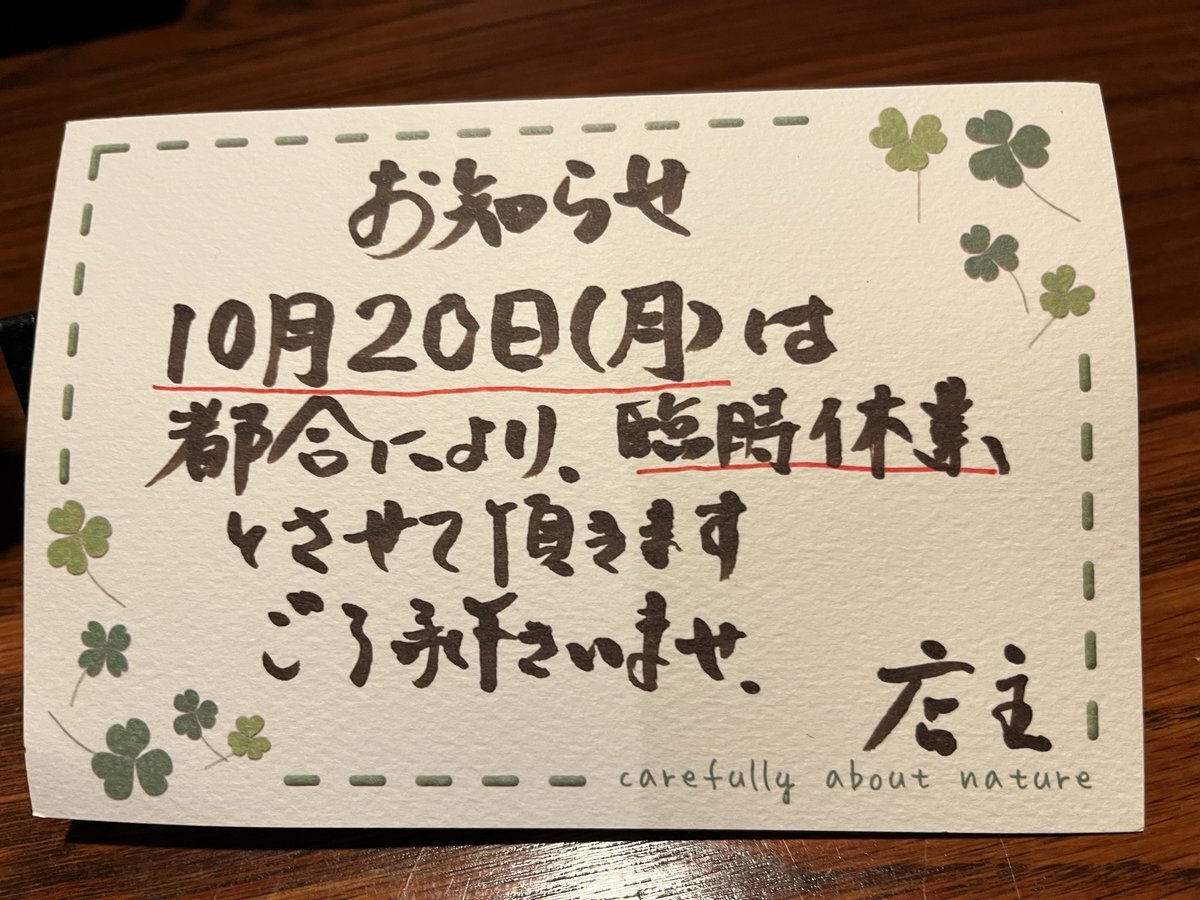 お知らせ
10月20日(月)は
都合により、臨時休業、
とさせて頂きます
ご了承下さいませ。
店主
carefully about nature